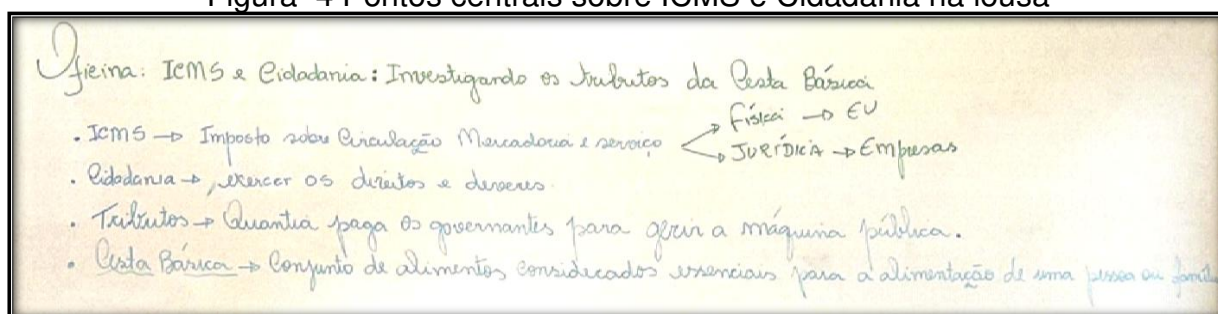 Figura 4 Pontos centrais sobre ICMS e Cidadania na lousa
Oficina: ICMS e Cidadania: Investigando os tributos da Cesta Básica
. ICMS → Imposto sobre Circulação Mercadoria e serviço → Física → EU
→ JURÍDICA → Empresas
. Cidadania → exercer os direitos e deveres.
. Tributos → Quantia paga os governantes para gerir a máquina pública.
. Cesta Básica → Conjunto de alimentos considerados essenciais para a alimentação de uma pessoa ou família